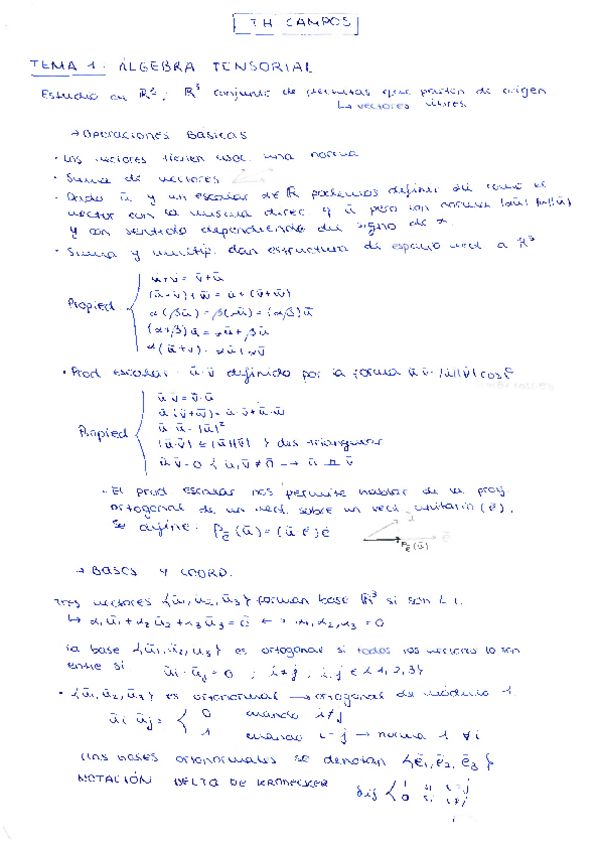 TH CAMPOS
TEMA 1. ÁLGEBRA TENSORIAL
Estudio en ℝ², ℝ³ conjunto de flechitas que parten de origen
↳ vectores libres
→ Operaciones básicas
· Los vectores tienen asoc. una norma
· Suma de vectores
· Dado ū y un escalar α∈ℝ podemos definir αū como el
vector con la misma direc. q ū pero con norma |αū|=|α||ū|
y con sentido dependiendo del signo de α.
· Suma y multip. dan estructura de espacio vect a ℝ³
Propied.
ū+v̄ = v̄+ū
(ū+v̄)+w̄ = ū+(v̄+w̄)
α(βū) = β(αū) = (αβ)ū
(α+β)ū = αū+βū
α(ū+v̄) = αū+αv̄
· Prod escalar ū·v̄ definido por la forma ū·v̄ = |ū||v̄|cos
Propied
ū·v̄ = v̄·ū
ū(v̄+w̄) = ū·v̄+ū·w̄
ū·ū = |ū|²
|ū·v̄| ≤ |ū||v̄| } des triangular
ū·v̄ = 0 { ū,v̄ ≠ 0̄ → ū ⊥ v̄
· El prod escalar nos permite hablar de la proy.
ortogonal de un vect. sobre un vect. unitario (ē).
Se define: Pē(ū) = (ū·ē)ē
ū
ē
Pē(ū)
→ BASES Y COORD.
Tres vectores {ū₁, ū₂, ū₃} forman base ℝ³ si son L.I.
↳ α₁ū₁+α₂ū₂+α₃ū₃ = 0̄ ↔ α₁,α₂,α₃ = 0
la base {ū₁,ū₂,ū₃} es ortogonal si todos los vectores lo son
entre sí ūi·ūj = 0 ; i≠j ; i,j ∈ {1,2,3}
· {ū₁,ū₂,ū₃} es ortonormal → ortogonal de módulo 1
ūi ūj = { 0 cuando i≠j
1 cuando i=j → norma 1 ∀i
(las bases ortonormales se denotan {ē₁,ē₂,ē₃}
NOTACIÓN DELTA DE KRONECKER δij { 1 si i=j
0 si i≠j